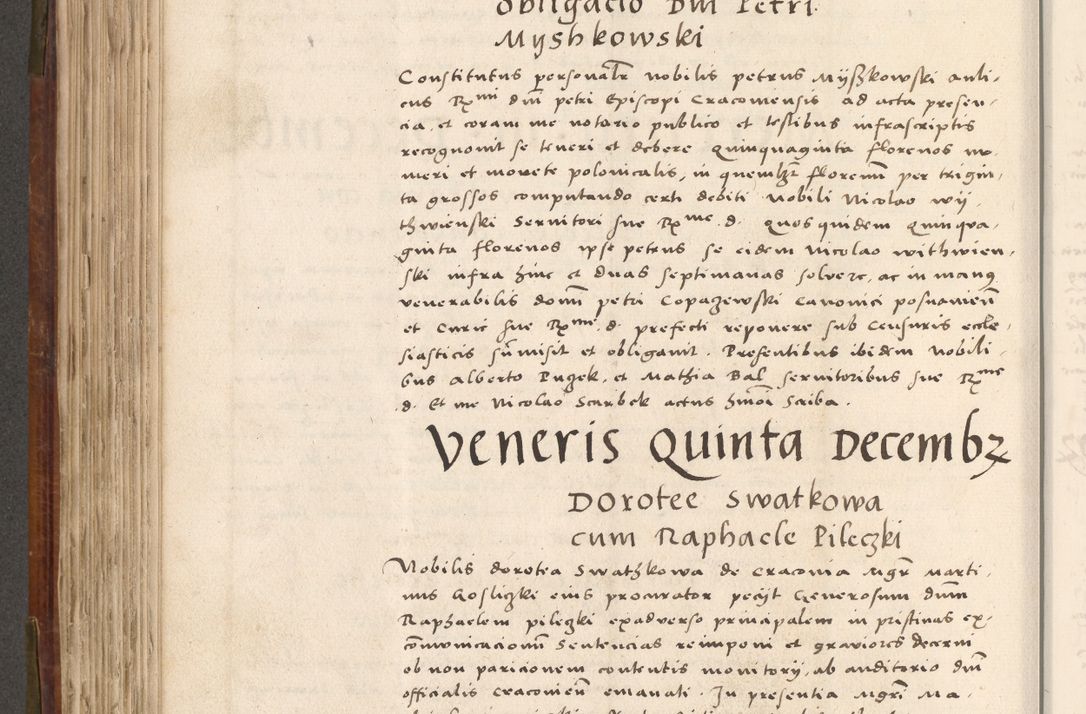 obligacio Dni Petri
Myshkowski
Constitutus personalr nobilis petrus Myszkowski auli-
cus Rmi dni petri Episcopi Cracoviensis ad acta presen-
cia, et coram me notario publico et testibus infrascriptis
recognouit se teneri et debere quinquaginta florenos nu-
meri et monete polonicalis, in quemlzt florenum per trigin-
ta grossos computando certi debiti Nobili Nicolao wy-
thwienski Servitori sue Rme d. quos quidem quinqua-
ginta florenos ipse petrus se eidem Nicolao withwien-
ski infra hinc et duas septimanas solvere, ac in manus
venerabilis domini petri Copaszewski Canonici posnanien
et Curie sue Rme d. prefecti reponere sub Censuris eccle-
siasticis submisit et obligauit. Presentibus ibidem Nobili-
bus Alberto Puzek, et Mathia Bal servitoribus sue Rme
d. Et me Nicolao Scarbek actus Scriba.
Veneris Quinta Decembz
Dorotee Swatkowa
cum Raphaele Pileczki
Nobilis dorotea Swathkowa de Cracovia Mgr Marti-
nus Goslizki eius procurator pecijt Generosum dnum
Raphaelem pileczki exadverso principalem in pristinas ex-
comunicacionum Sentencias reimponi et graviores decerni
ob non paricionem contentis monitorij, ab auditorio dni
officialis Cracovien emanati. In presentia Mgri Ma-